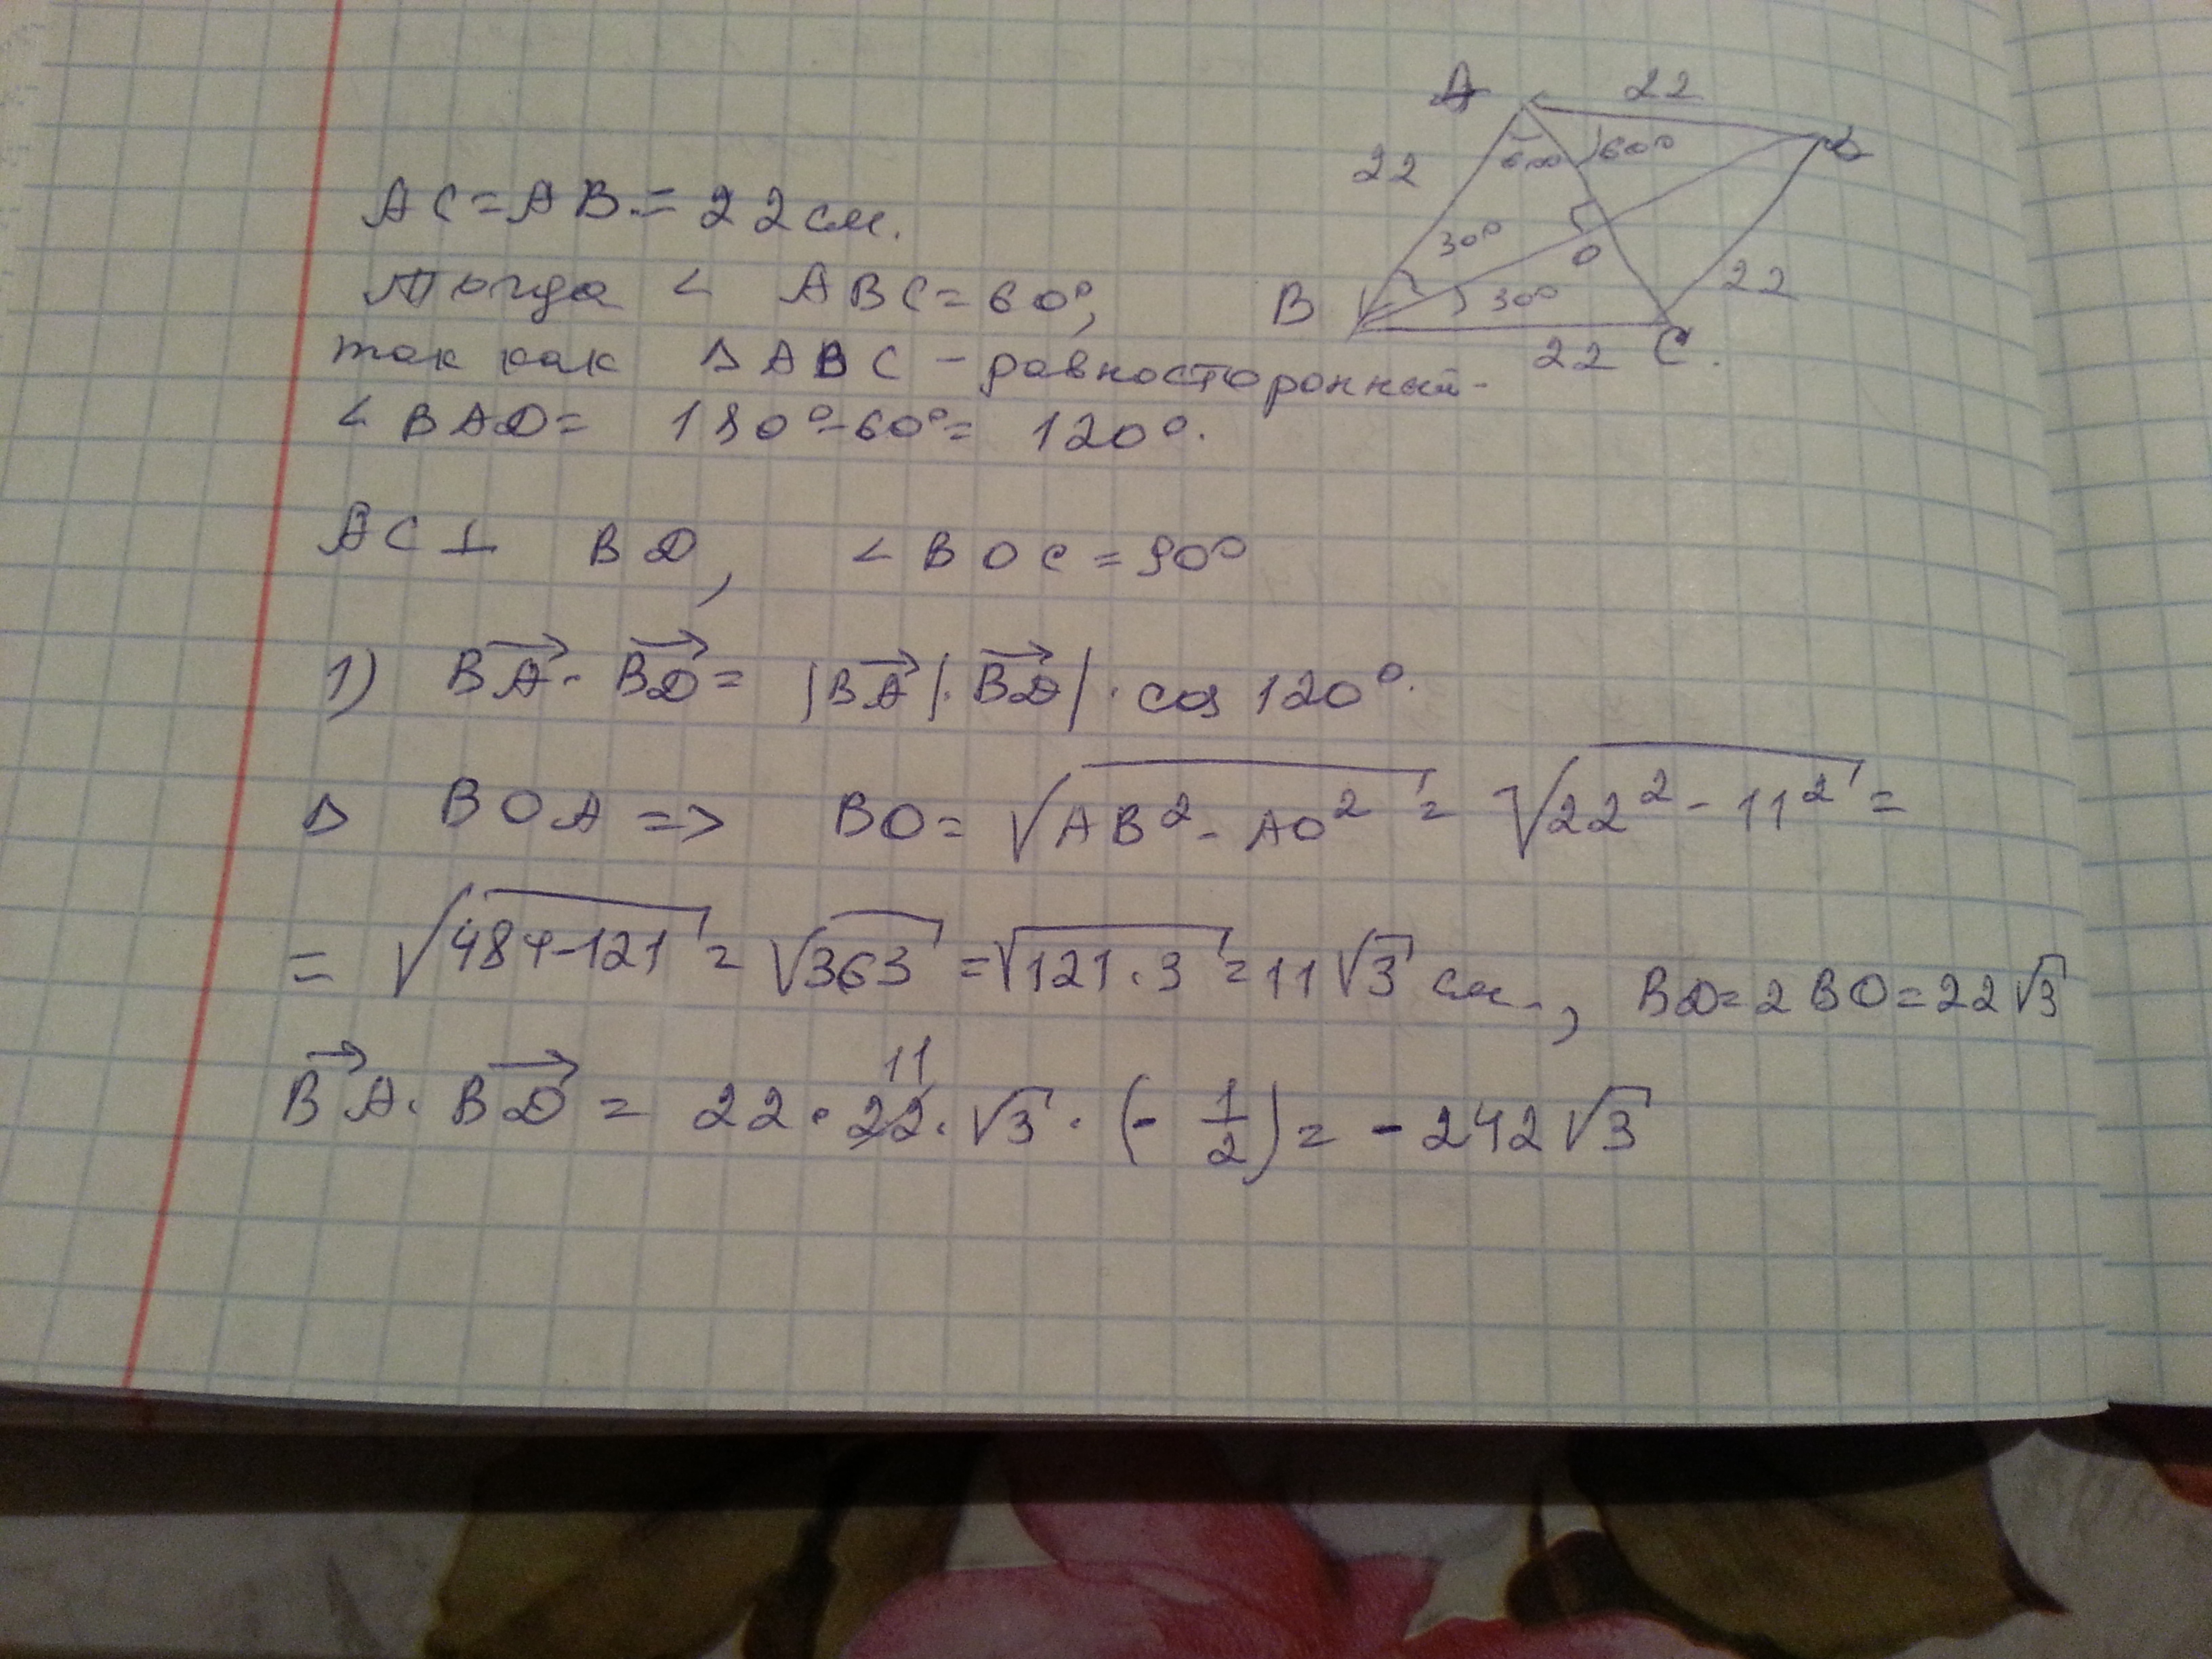 A 22 D
22 60° 60°
30° O
B 30° 22
22 C.
AC = AB = 22 см.
Тогда ∠ ABC = 60°,
так как Δ ABC – равносторонный-
∠ BAD = 180° - 60° = 120°.
AC ⊥ BD, ∠ BOC = 90°
1) BA⃗ · BD⃗ = |BA⃗| · BD⃗| · cos 120°.
Δ BOA => BO = √(AB² - AO²) = √(22² - 11²) =
= √(484-121) = √363 = √(121·3) = 11√3 см., BD = 2 BO = 22√3
11
BA⃗ · BD⃗ = 22 · 22 · √3 · (- 1/2) = - 242√3